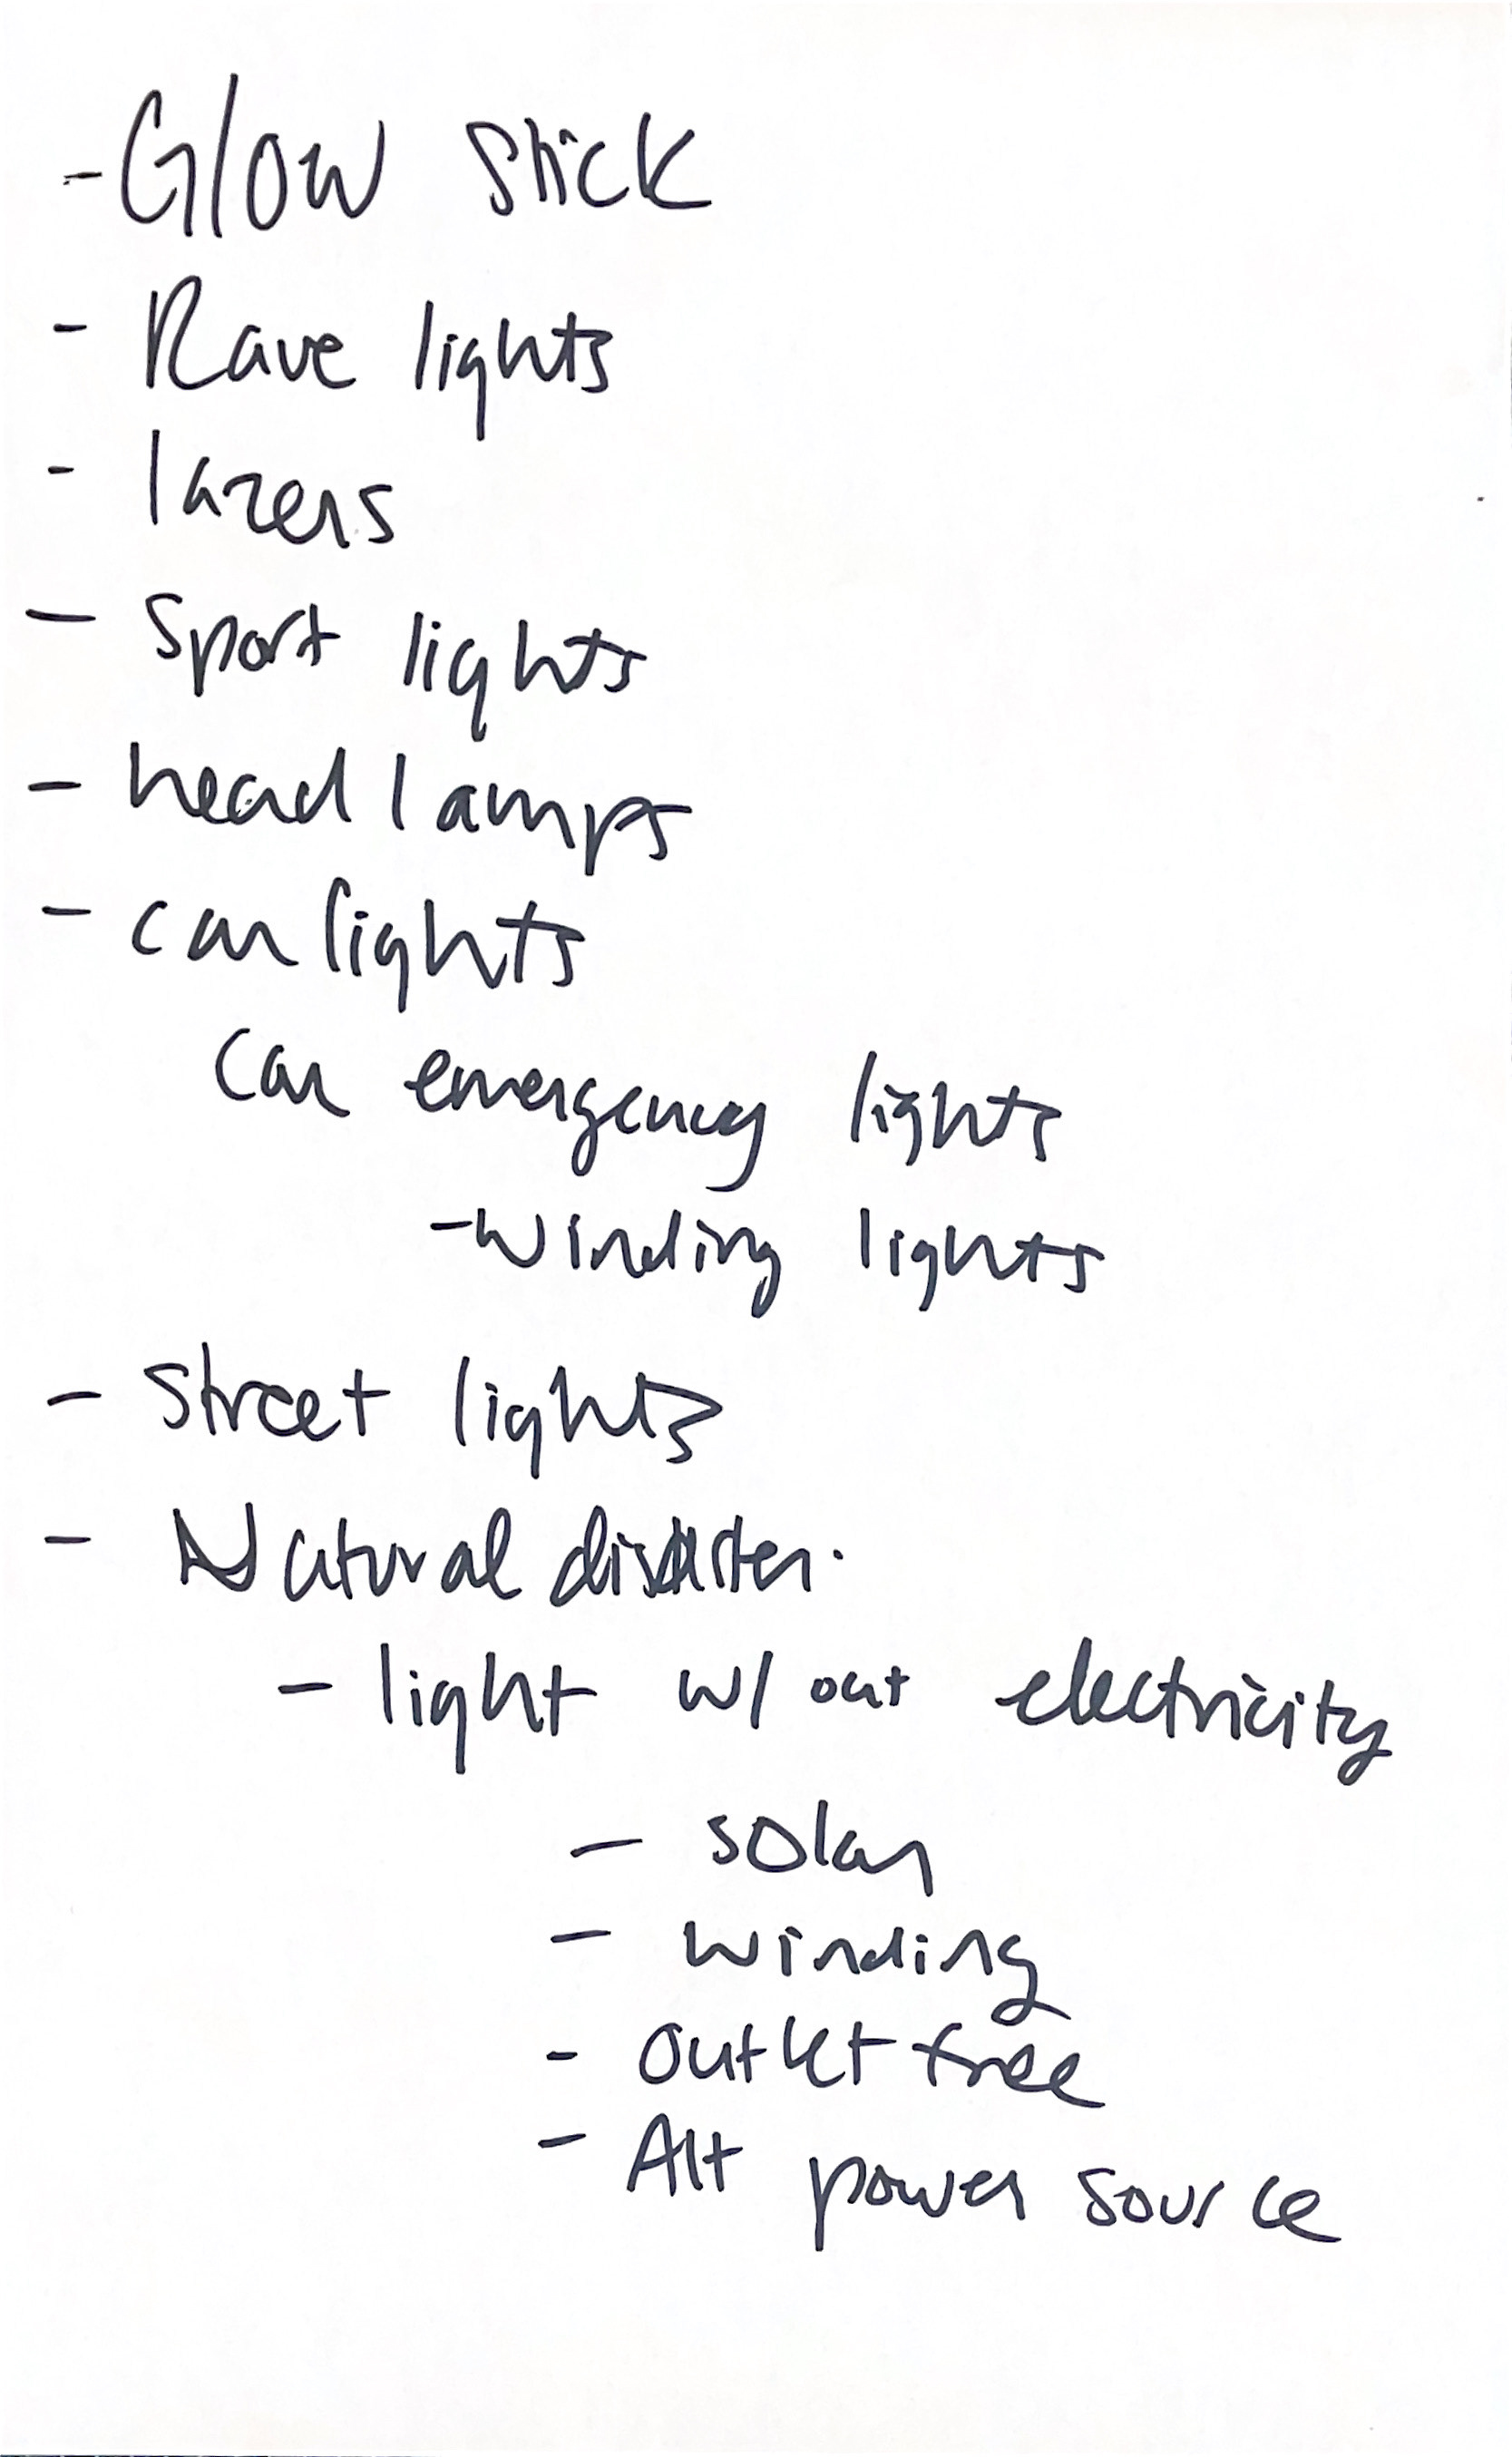 - Glow stick
- Rave lights
- lazers
- Sport lights
- head lamps
- car lights
car emergency lights
- winding lights
- Street lights
- Natural disaster.
- light w/ out electricity
- solar
- winding
- outlet free
- Alt power source